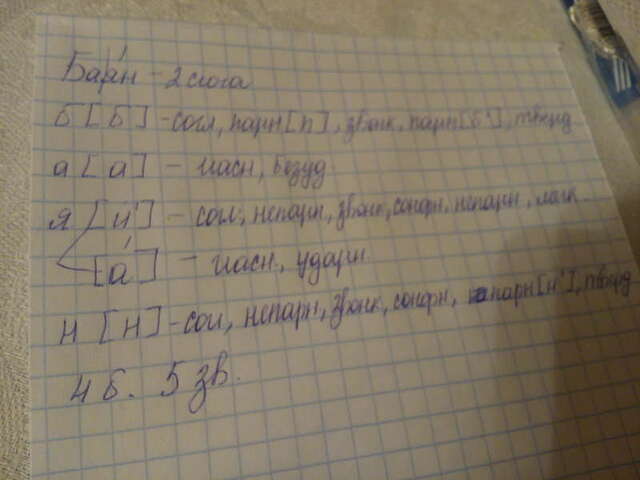 Бая́н - 2 слога
б [б] - согл, парн [п], звонк, парн [б'], тверд
а [а] - гласн, безуд
я [й'] - согл, непарн, звонк, сонорн, непарн, мягк
[а́] - гласн, ударн
н [н] - согл, непарн, звонк, сонорн, парн [н'], тверд
4 б. 5 зв.